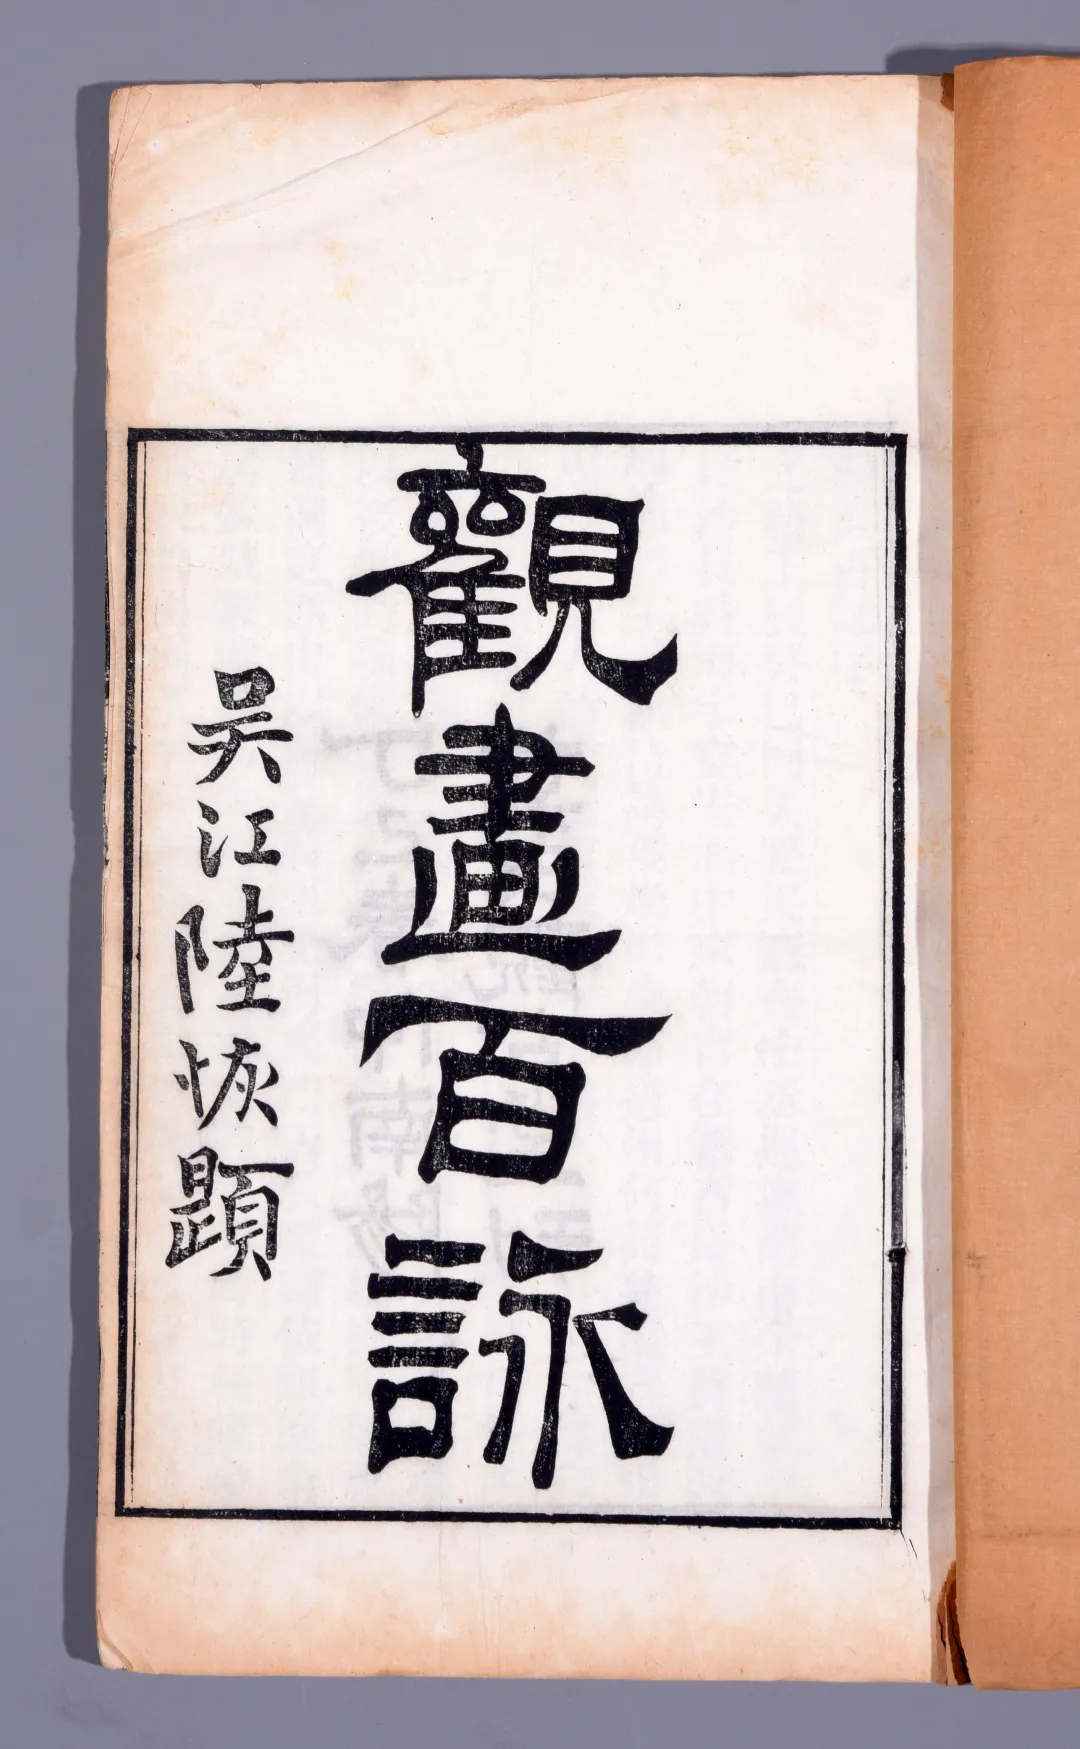 觀畫百詠
吳江陸恢題